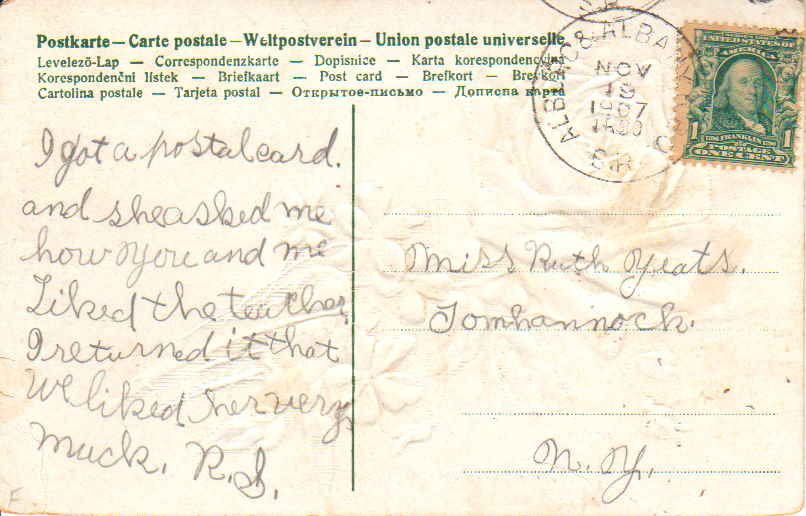 Postkarte — Carte postale — Weltpostverein — Union postale universelle
Levelező-Lap — Correspondenzkarte — Dopisnice — Karta korespondencyjna
Korespondenční lístek — Briefkaart — Post card — Brefkort — Brevkort
Cartolina postale — Tarjeta postal — Открытое-письмо — Дописна карта
NOV
1907
1
POSTAGE
ONE CENT
I got a postal card.
and she asked me
how You and me
Liked the teacher
I returned it that
We liked her very
muck. R.S.
Miss Ruth Yeats.
Tomhannock.
N. Y.